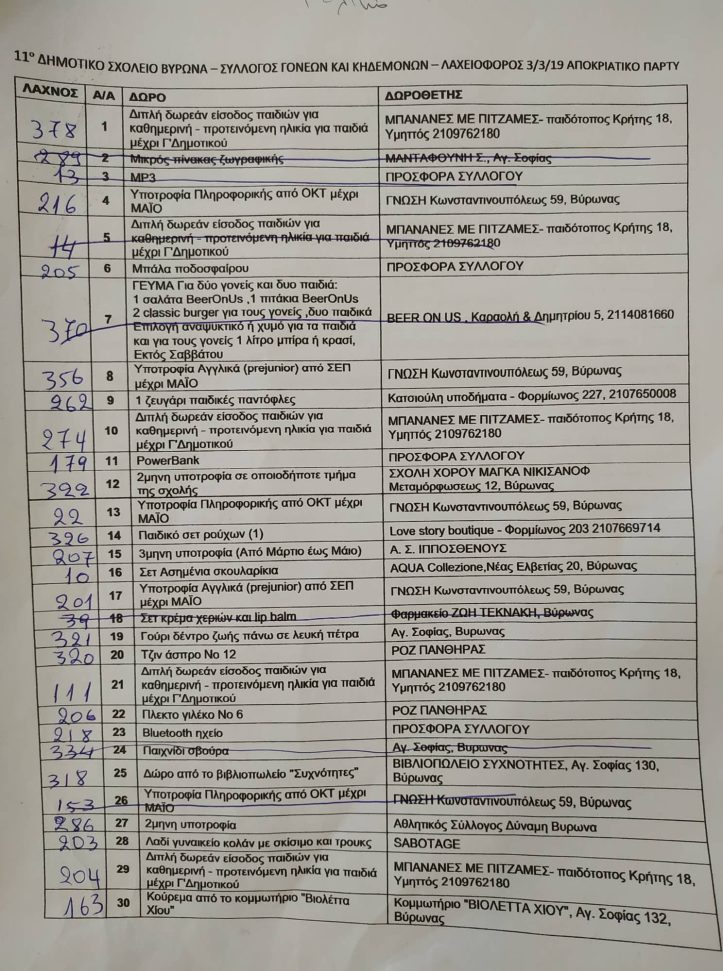 11° ΔΗΜΟΤΙΚΟ ΣΧΟΛΕΙΟ ΒΥΡΩΝΑ – ΣΥΛΛΟΓΟΣ ΓΟΝΕΩΝ ΚΑΙ ΚΗΔΕΜΟΝΩΝ – ΛΑΧΕΙΟΦΟΡΟΣ 3/3/19 ΑΠΟΚΡΙΑΤΙΚΟ ΠΑΡΤΥ
ΛΑΧΝΟΣ Α/Α ΔΩΡΟ ΔΩΡΟΘΕΤΗΣ
378 1 Διπλή δωρεάν είσοδος παιδιών για
καθημερινή - προτεινόμενη ηλικία για παιδιά
μέχρι Γ'Δημοτικού
ΜΠΑΝΑΝΕΣ ΜΕ ΠΙΤΖΑΜΕΣ- παιδότοπος Κρήτης 18,
Υμηττός 2109762180
289 2 Μικρός πίνακας ζωγραφικής ΜΑΝΤΑΦΟΥΝΗ Σ., Αγ. Σοφίας
13 3 MP3 ΠΡΟΣΦΟΡΑ ΣΥΛΛΟΓΟΥ
216 4 Υποτροφία Πληροφορικής από ΟΚΤ μέχρι
ΜΑΪΟ
ΓΝΩΣΗ Κωνσταντινουπόλεως 59, Βύρωνας
14 5 Διπλή δωρεάν είσοδος παιδιών για
καθημερινή - προτεινόμενη ηλικία για παιδιά
μέχρι Γ'Δημοτικού
ΜΠΑΝΑΝΕΣ ΜΕ ΠΙΤΖΑΜΕΣ- παιδότοπος Κρήτης 18,
Υμηττός 2109762180
205 6 Μπάλα ποδοσφαίρου ΠΡΟΣΦΟΡΑ ΣΥΛΛΟΓΟΥ
370 7 ΓΕΥΜΑ Για δύο γονείς και δυο παιδιά:
1 σαλάτα BeerOnUs ,1 πιτάκια BeerOnUs
2 classic burger για τους γονείς ,δυο παιδικά
Επιλογή αναψυκτικό ή χυμό για τα παιδιά
και για τους γονείς 1 λίτρο μπίρα ή κρασί,
Εκτός Σαββάτου
BEER ON US , Καραολή & Δημητρίου 5, 2114081660
356 8 Υποτροφία Αγγλικά (prejunior) από ΣΕΠ
μέχρι ΜΑΪΟ
ΓΝΩΣΗ Κωνσταντινουπόλεως 59, Βύρωνας
262 9 1 ζευγάρι παιδικές παντόφλες Κατσιούλη υποδήματα - Φορμίωνος 227, 2107650008
274 10 Διπλή δωρεάν είσοδος παιδιών για
καθημερινή - προτεινόμενη ηλικία για παιδιά
μέχρι Γ'Δημοτικού
ΜΠΑΝΑΝΕΣ ΜΕ ΠΙΤΖΑΜΕΣ- παιδότοπος Κρήτης 18,
Υμηττός 2109762180
179 11 PowerBank ΠΡΟΣΦΟΡΑ ΣΥΛΛΟΓΟΥ
322 12 2μηνη υποτροφία σε οποιοδήποτε τμήμα
της σχολής
ΣΧΟΛΗ ΧΟΡΟΥ ΜΑΓΚΑ ΝΙΚΙΣΑΝΟΦ
Μεταμόρφωσεως 12, Βύρωνας
22 13 Υποτροφία Πληροφορικής από ΟΚΤ μέχρι
ΜΑΪΟ
ΓΝΩΣΗ Κωνσταντινουπόλεως 59, Βύρωνας
326 14 Παιδικό σετ ρούχων (1) Love story boutique - Φορμίωνος 203 2107669714
207 15 3μηνη υποτροφία (Από Μάρτιο έως Μάιο) Α. Σ. ΙΠΠΟΣΘΕΝΟΥΣ
10 16 Σετ Ασημένια σκουλαρίκια AQUA Collezione,Νέας Ελβετίας 20, Βύρωνας
201 17 Υποτροφία Αγγλικά (prejunior) από ΣΕΠ
μέχρι ΜΑΪΟ
ΓΝΩΣΗ Κωνσταντινουπόλεως 59, Βύρωνας
39 18 Σετ κρέμα χεριών και lip balm Φαρμακείο ΖΩΗ ΤΕΚΝΑΚΗ, Βύρωνας
321 19 Γούρι δέντρο ζωής πάνω σε λευκή πέτρα Αγ. Σοφίας, Βυρωνας
320 20 Τζιν άσπρο Νο 12 ΡΟΖ ΠΑΝΘΗΡΑΣ
111 21 Διπλή δωρεάν είσοδος παιδιών για
καθημερινή - προτεινόμενη ηλικία για παιδιά
μέχρι Γ'Δημοτικού
ΜΠΑΝΑΝΕΣ ΜΕ ΠΙΤΖΑΜΕΣ- παιδότοπος Κρήτης 18,
Υμηττός 2109762180
206 22 Πλεκτο γιλέκο Νο 6 ΡΟΖ ΠΑΝΘΗΡΑΣ
218 23 Bluetooth ηχείο ΠΡΟΣΦΟΡΑ ΣΥΛΛΟΓΟΥ
334 24 Παιχνίδι σβούρα Αγ. Σοφίας, Βυρωνας
318 25 Δώρο από το βιβλιοπωλείο "Συχνότητες" ΒΙΒΛΙΟΠΩΛΕΙΟ ΣΥΧΝΟΤΗΤΕΣ, Αγ. Σοφίας 130,
Βύρωνας
153 26 Υποτροφία Πληροφορικής από ΟΚΤ μέχρι
ΜΑΪΟ
ΓΝΩΣΗ Κωνσταντινουπόλεως 59, Βύρωνας
286 27 2μηνη υποτροφία Αθλητικός Σύλλογος Δύναμη Βυρωνα
203 28 Λαδί γυναικείο κολάν με σκίσιμο και τρουκς SABOTAGE
204 29 Διπλή δωρεάν είσοδος παιδιών για
καθημερινή - προτεινόμενη ηλικία για παιδιά
μέχρι Γ'Δημοτικού
ΜΠΑΝΑΝΕΣ ΜΕ ΠΙΤΖΑΜΕΣ- παιδότοπος Κρήτης 18,
Υμηττός 2109762180
163 30 Κούρεμα από το κομμωτήριο "Βιολέττα
Χίου"
Κομμωτήριο "ΒΙΟΛΕΤΤΑ ΧΙΟΥ", Αγ. Σοφίας 132,
Βύρωνας